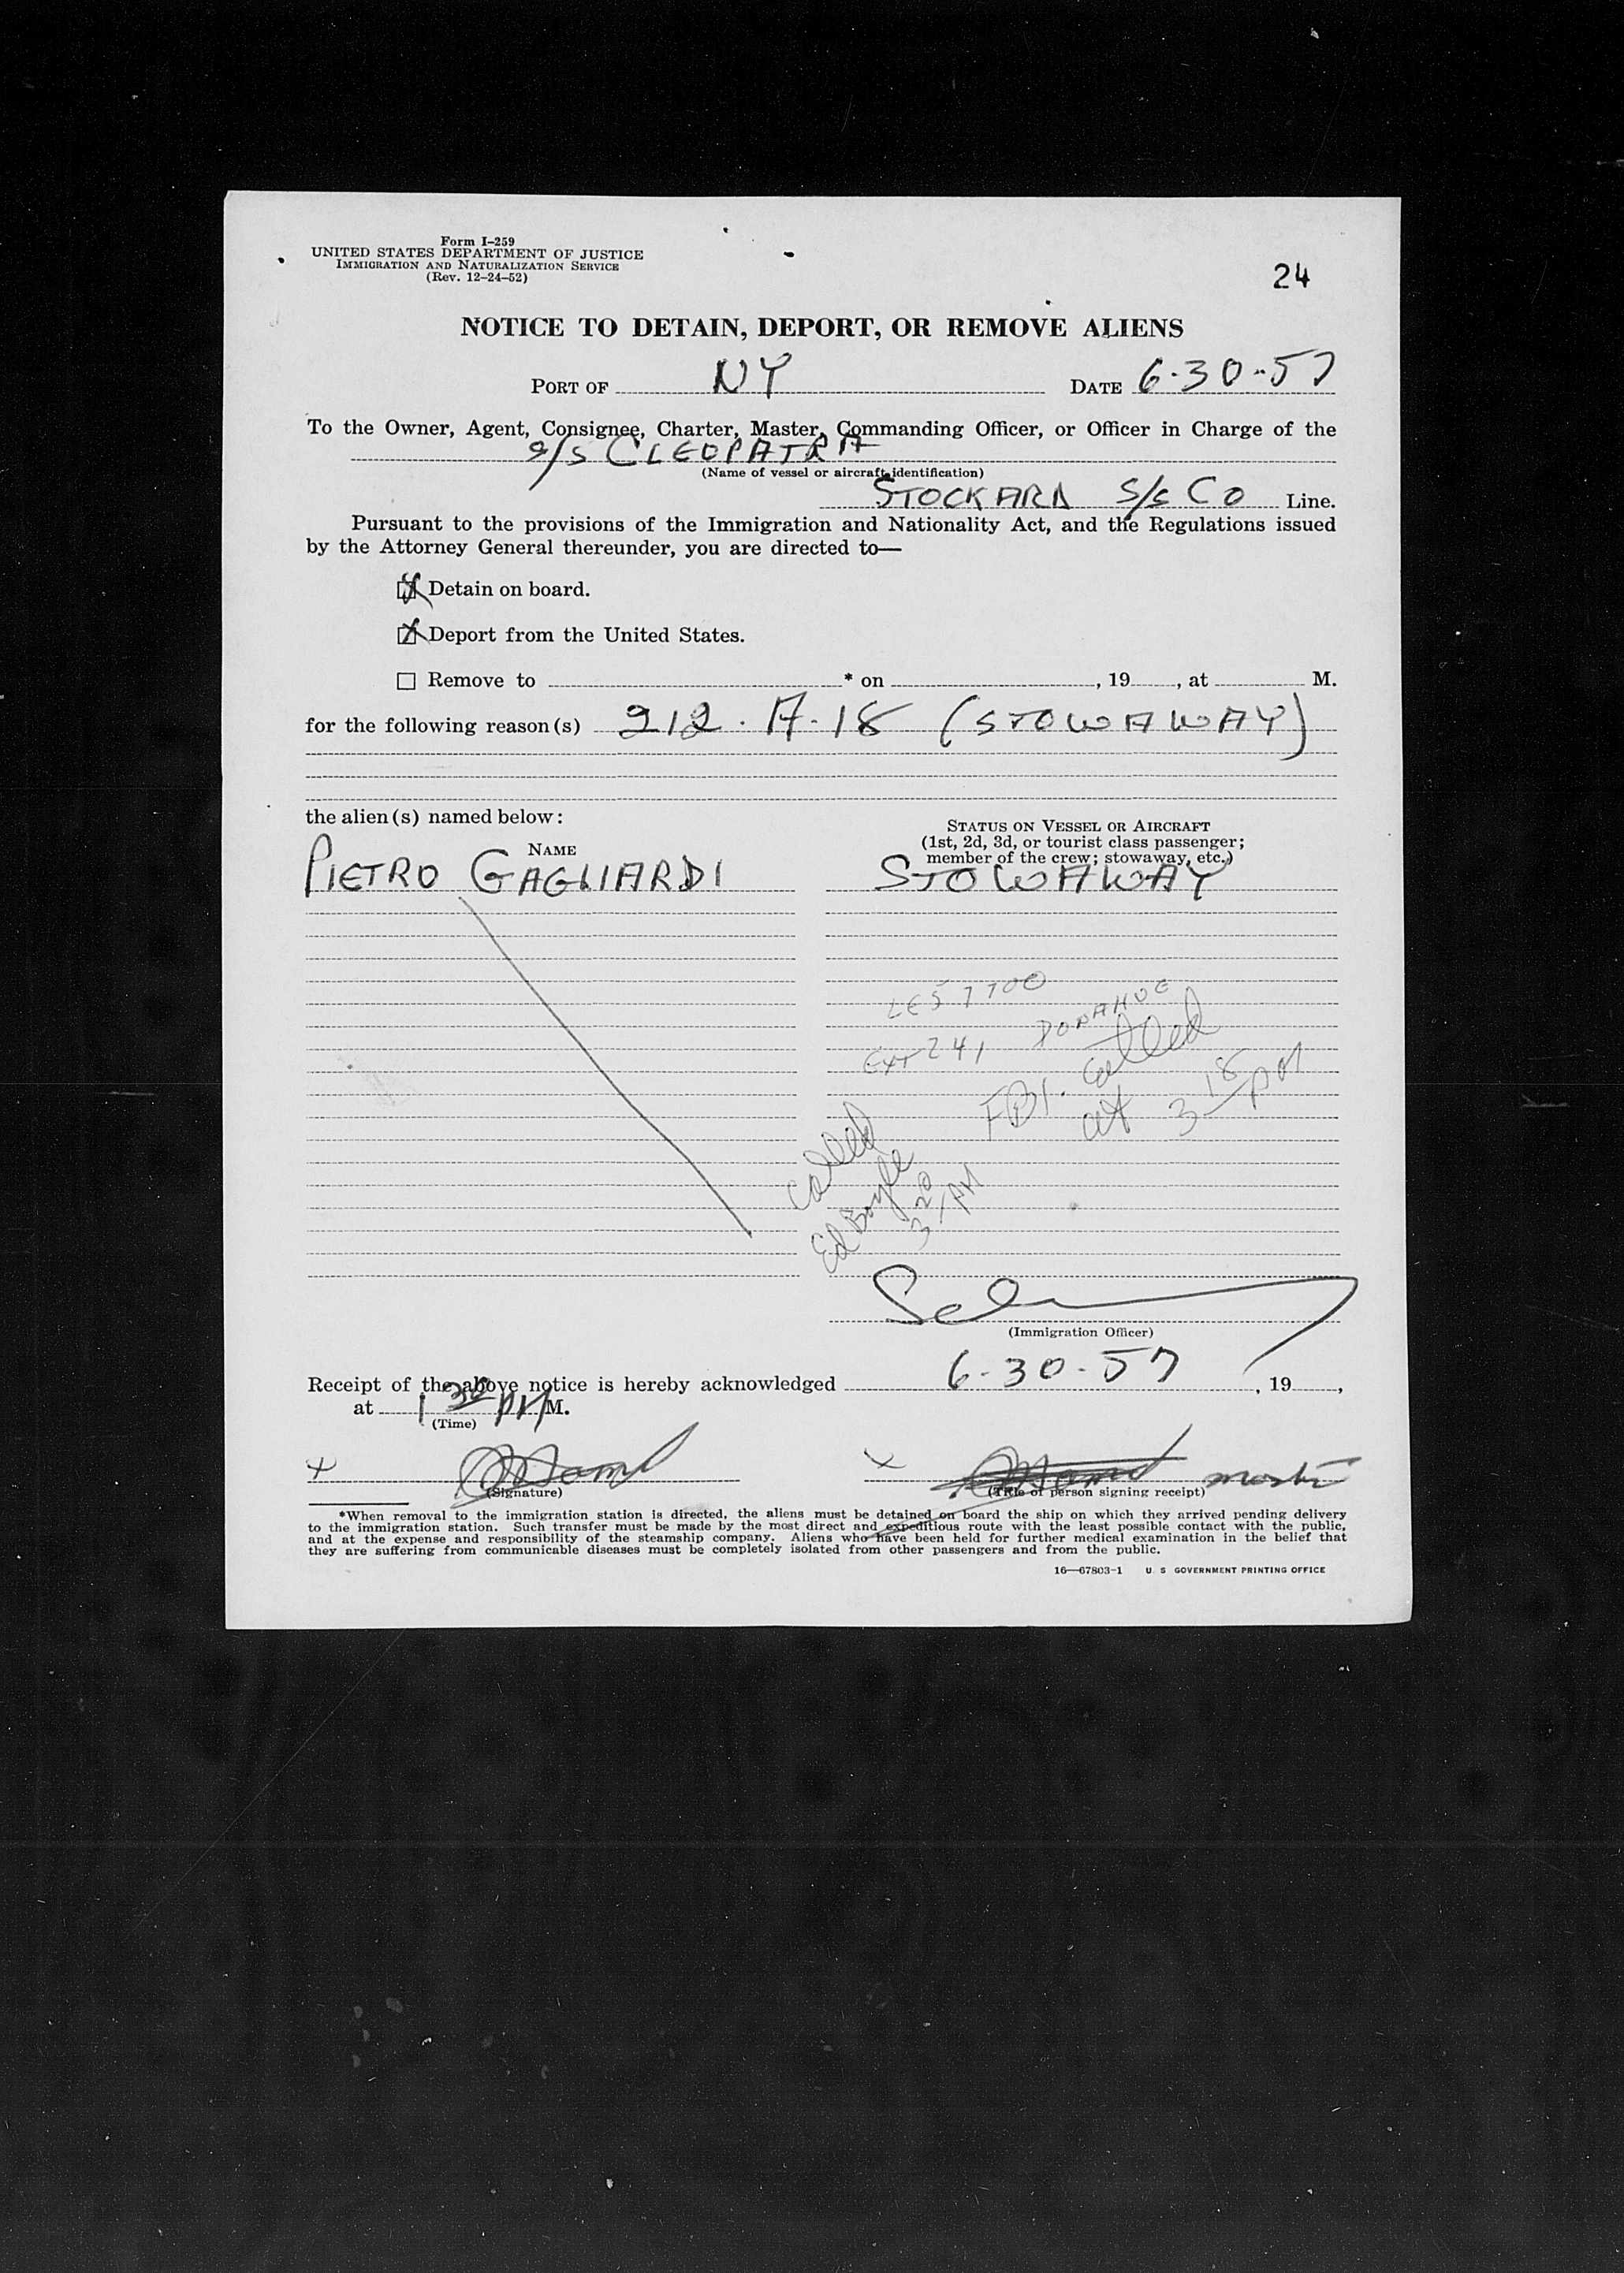 Form I-259
UNITED STATES DEPARTMENT OF JUSTICE
IMMIGRATION AND NATURALIZATION SERVICE
(Rev. 12-24-52)
24
NOTICE TO DETAIN, DEPORT, OR REMOVE ALIENS
PORT OF NY DATE 6-30-57
To the Owner, Agent, Consignee, Charter, Master, Commanding Officer, or Officer in Charge of the
S/S CLEOPATRA
(Name of vessel or aircraft identification)
STOCKARD S/S CO Line.
Pursuant to the provisions of the Immigration and Nationality Act, and the Regulations issued
by the Attorney General thereunder, you are directed to—
Detain on board.
Deport from the United States.
Remove to * on , 19 , at M.
for the following reason(s) 212. A. 18 (STOWAWAY)
the alien(s) named below:
NAME
STATUS ON VESSEL OR AIRCRAFT
(1st, 2d, 3d, or tourist class passenger;
member of the crew; stowaway, etc.)
PIETRO GAGLIARDI STOWAWAY
LE5 7700
EXT 241 DONAHUE
FBI. called
at 3 18 PM
Called
Ed Boyle
3 20 PM
(Immigration Officer)
Receipt of the above notice is hereby acknowledged 6-30-57, 19 ,
at 1 30 PM M.
(Time)
x
x master
(Signature)
(Title of person signing receipt)
*When removal to the immigration station is directed, the aliens must be detained on board the ship on which they arrived pending delivery
to the immigration station. Such transfer must be made by the most direct and expeditious route with the least possible contact with the public,
and at the expense and responsibility of the steamship company. Aliens who have been held for further medical examination in the belief that
they are suffering from communicable diseases must be completely isolated from other passengers and from the public.
16—67803-1 U. S. GOVERNMENT PRINTING OFFICE